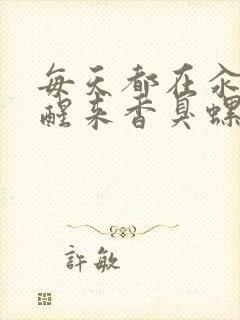 每天都在汆
醒来香臭螺
許敏